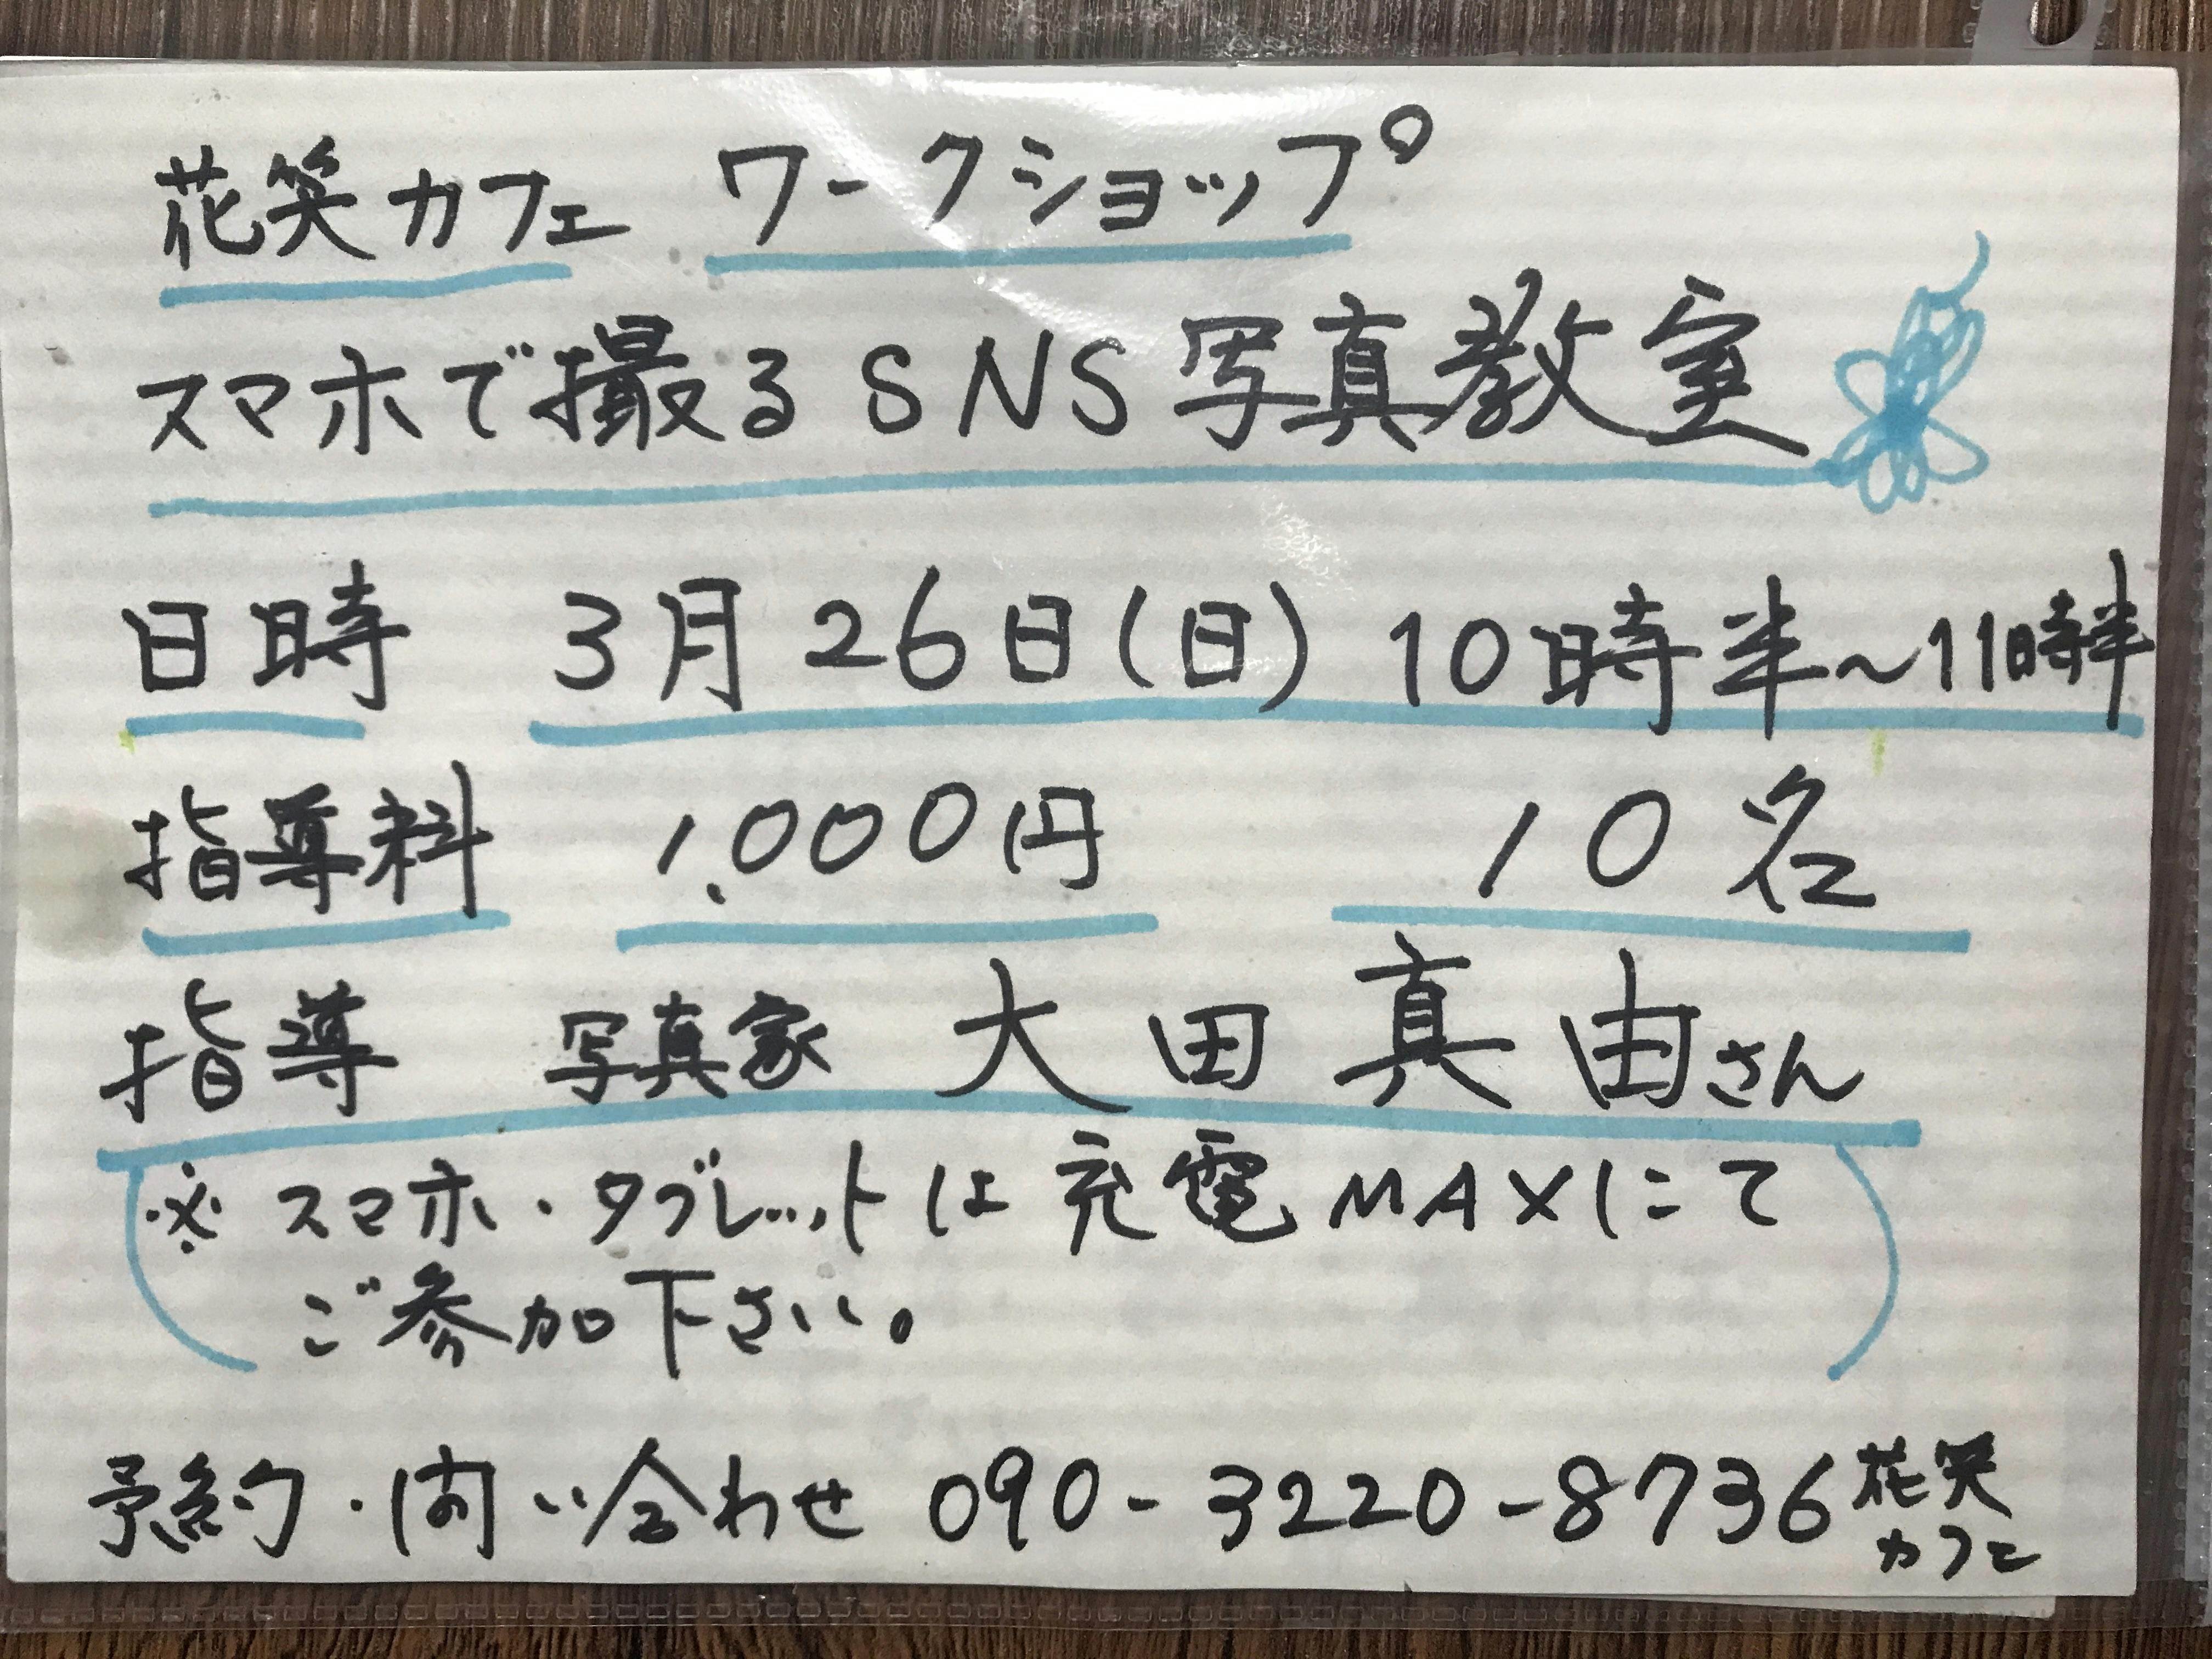 花笑カフェ ワークショップ
スマホで撮るSNS写真教室
日時 3月26日(日) 10時半～11時半
指導料 1,000円 10名
指導 写真家 大田真由さん
※ スマホ・タブレットは充電MAXにて
ご参加下さい。
予約・問い合わせ 090-3220-8736 花笑
カフェ